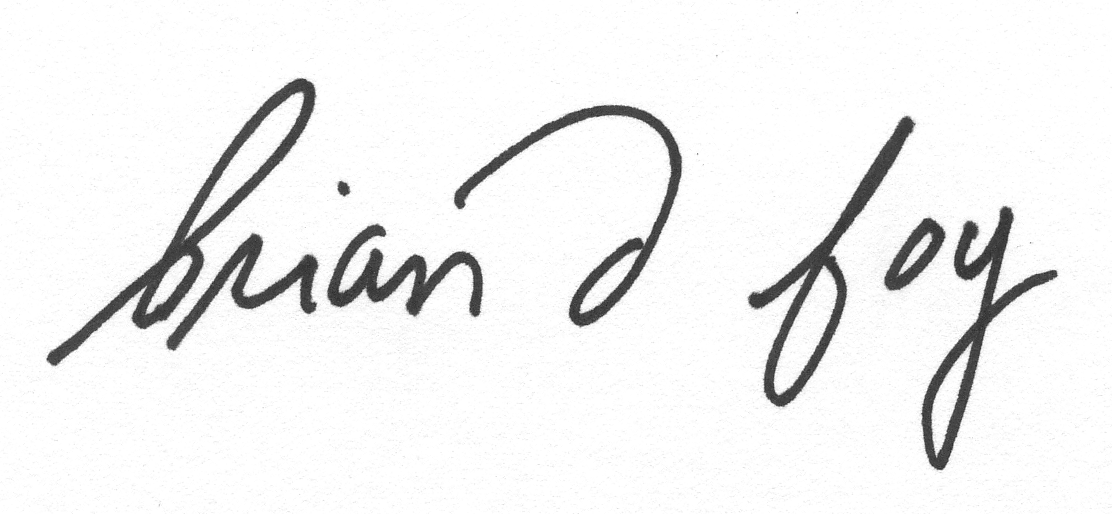 brian d foy